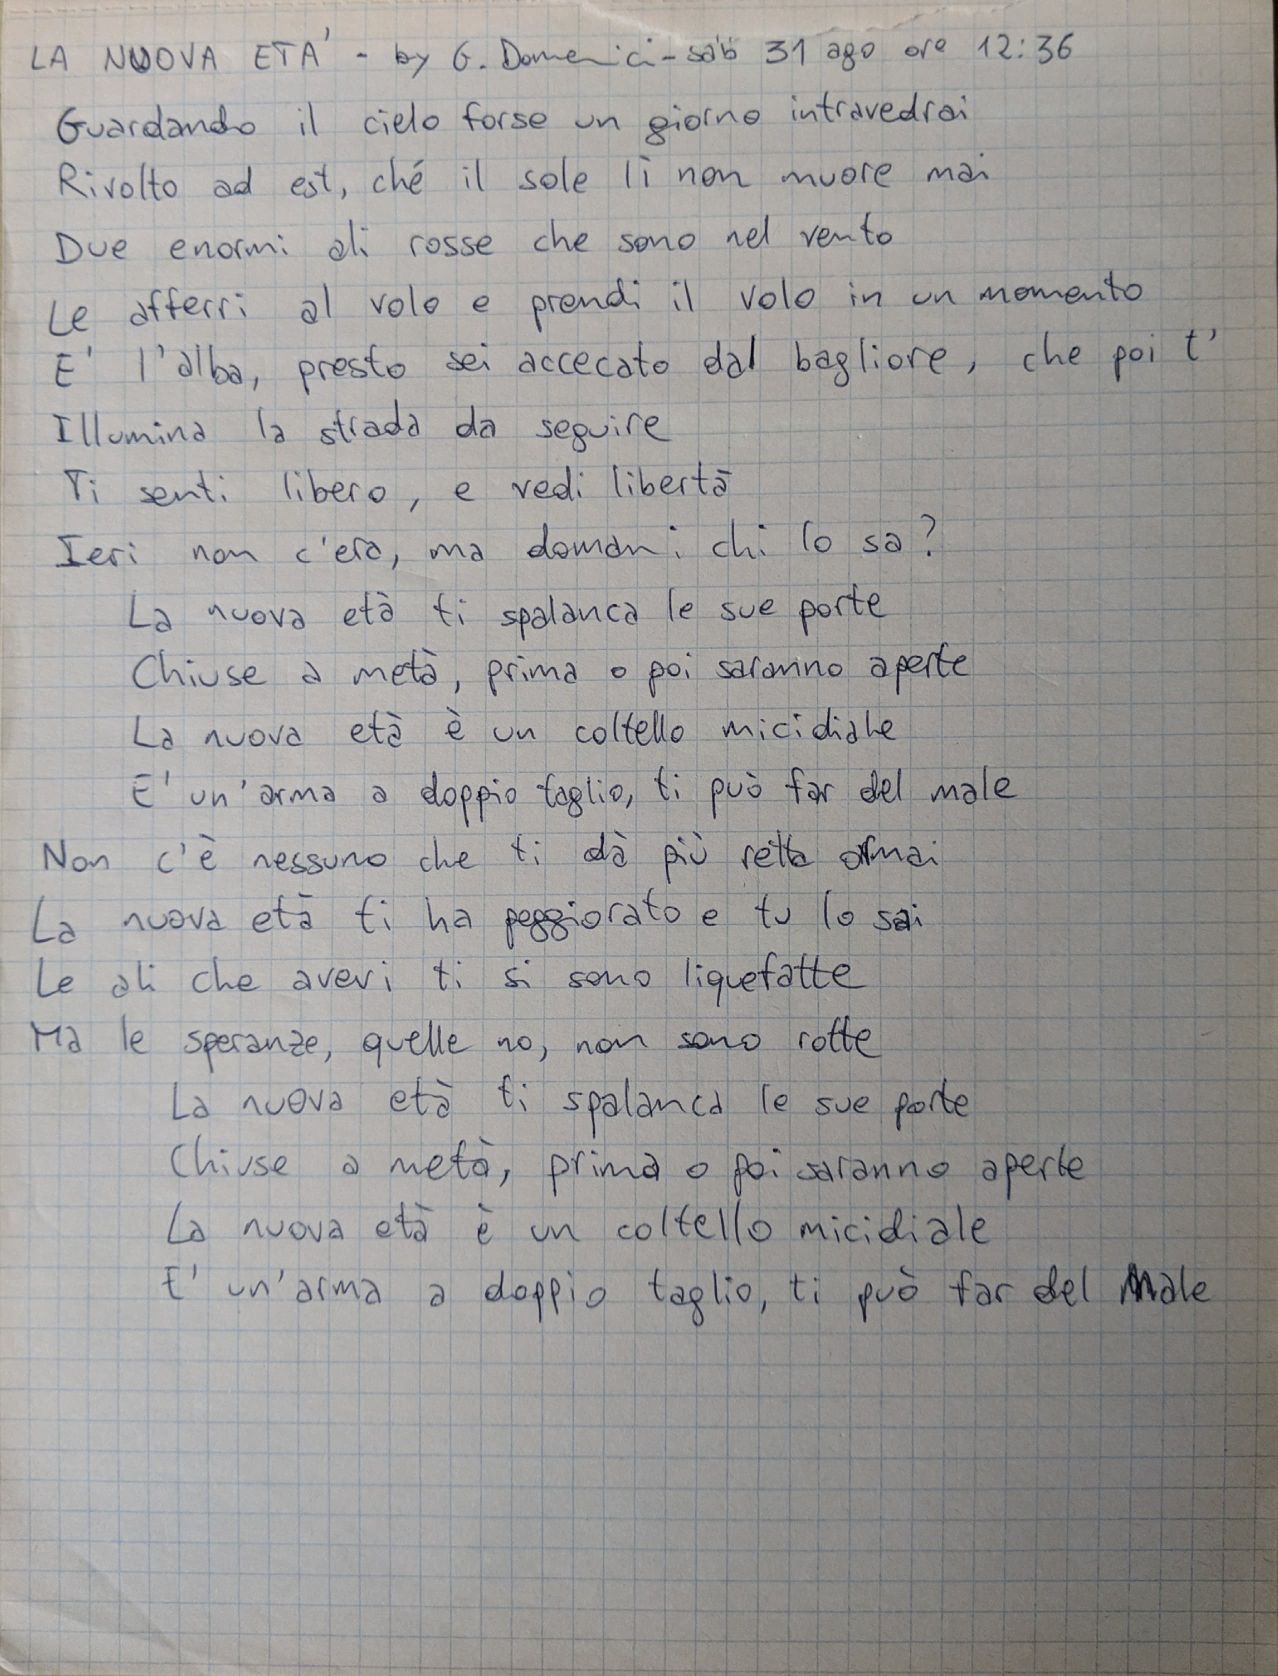 LA NUOVA ETA' - by G. Domenici - sab 31 ago ore 12:36
Guardando il cielo forse un giorno intravedrai
Rivolto ad est, ché il sole lì non muore mai
Due enormi ali rosse che sono nel vento
Le afferri al volo e prendi il volo in un momento
E' l'alba, presto sei accecato dal bagliore, che poi t'
Illumina la strada da seguire
Ti senti libero, e vedi libertà
Ieri non c'era, ma domani chi lo sa?
La nuova età ti spalanca le sue porte
Chiuse a metà, prima o poi saranno aperte
La nuova età è un coltello micidiale
E' un'arma a doppio taglio, ti può far del male
Non c'è nessuno che ti dà più retta ormai
La nuova età ti ha peggiorato e tu lo sai
Le ali che avevi ti si sono liquefatte
Ma le speranze, quelle no, non sono rotte
La nuova età ti spalanca le sue porte
Chiuse a metà, prima o poi saranno aperte
La nuova età è un coltello micidiale
E' un'arma a doppio taglio, ti può far del Male